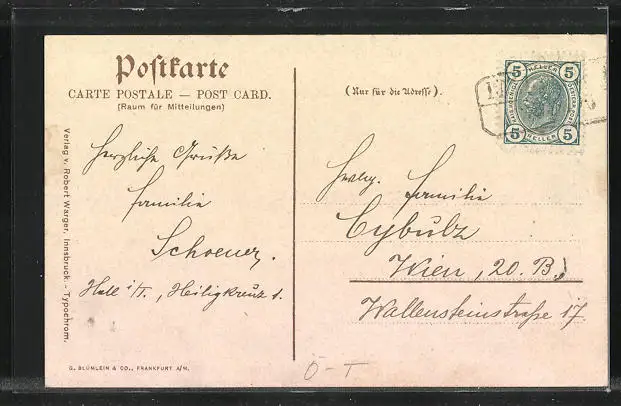 Postkarte
CARTE POSTALE — POST CARD.
(Raum für Mitteilungen)
(Nur für die Adresse).
5 HELLER 5
5 HELLER 5
Herzliche Grüße
Familie
Schoener.
Hall i/T., Heiligkreuz 1.
Familie
Cybulz
Wien, 20. B.)
Wallensteinstraße 17
Verlag v. Robert Warger, Innsbruck. – Typochrom.
G. BLÜMLEIN & CO., FRANKFURT A/M.
Ö-T